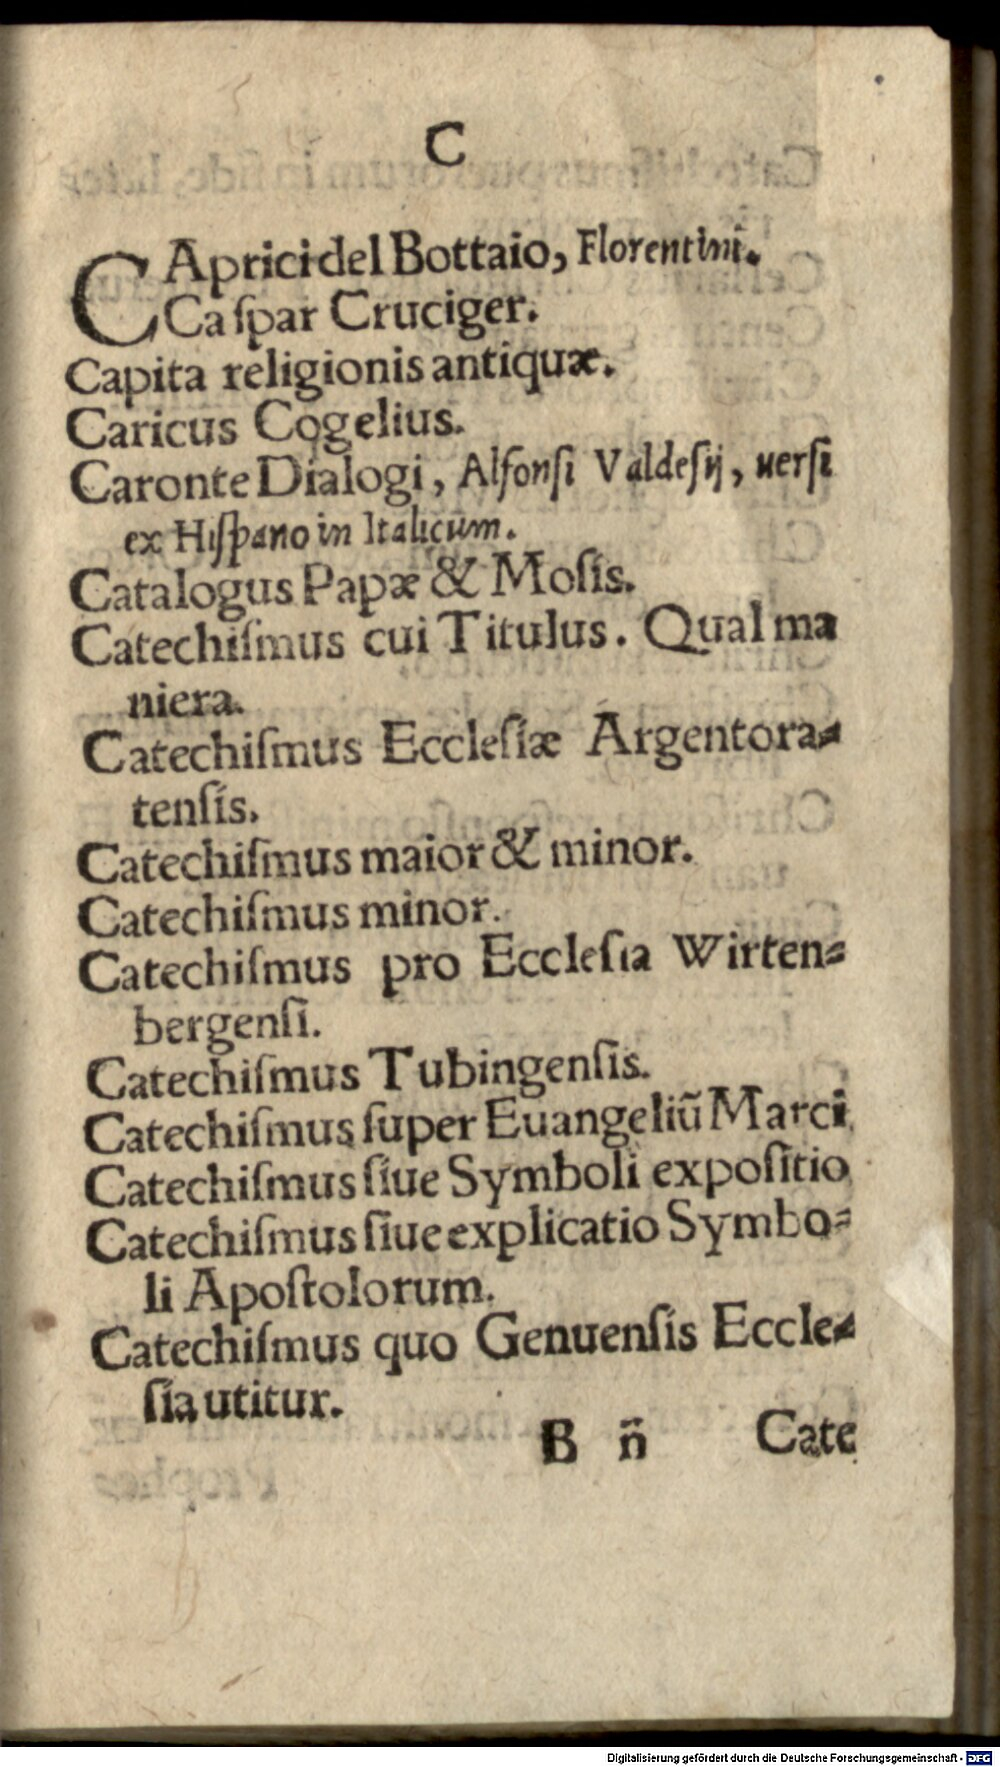 C
CAprici del Bottaio, Florentini.
Caſpar Cruciger.
Capita religionis antiquæ.
Caricus Cogelius.
Caronte Dialogi, Alfonſi Valdeſij, uerſi
ex Hiſpano in Italicum.
Catalogus Papæ & Moſis.
Catechiſmus cui Titulus. Qual ma
niera.
Catechiſmus Eccleſiæ Argentora⸗
tenſis.
Catechiſmus maior & minor.
Catechiſmus minor.
Catechiſmus pro Eccleſia Wirten⸗
bergenſi.
Catechiſmus Tubingenſis.
Catechiſmus ſuper Euangeliũ Marci
Catechiſmus ſiue Symboli expoſitio
Catechiſmus ſiue explicatio Symbo⸗
li Apoſtolorum.
Catechiſmus quo Genuenſis Eccle⸗
ſia utitur.
B ñ Cate
Digitalisierung gefördert durch die Deutsche Forschungsgemeinschaft - DFG